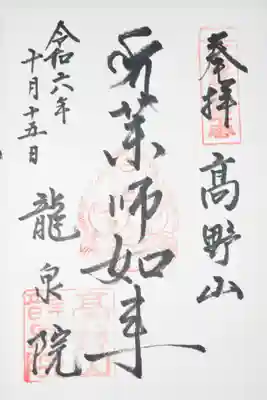 奉拝
髙野山
薬師如来
令和六年
十月十五日
龍泉院